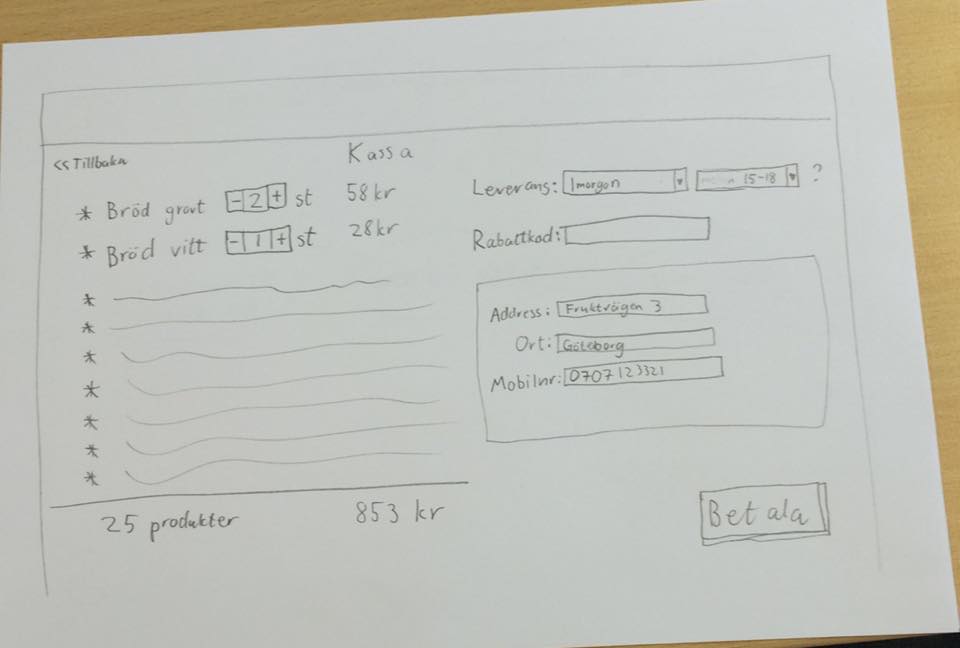 << Tillbaka
Kassa
* Bröd grovt - 2 + st 58 kr
* Bröd vitt - 1 + st 28 kr
*
*
*
*
*
*
*
25 produkter 853 kr
Leverans: Imorgon 15-18 ?
Rabattkod:
Address: Fruktvägen 3
Ort: Göteborg
Mobilnr: 0707123321
Betala